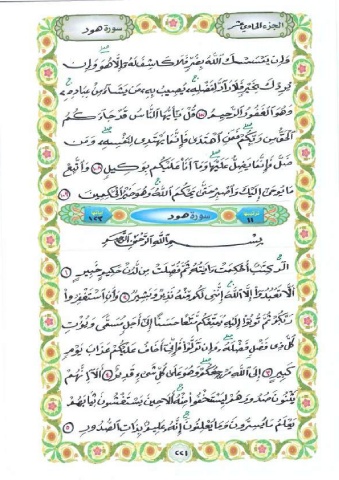 الجزء الحادي عشر سورة هود
وَإِن يَمْسَسْكَ اللَّهُ بِضُرٍّ فَلَا كَاشِفَ لَهُ إِلَّا هُوَ وَإِن
يُرِدْكَ بِخَيْرٍ فَلَا رَادَّ لِفَضْلِهِ يُصِيبُ بِهِ مَن يَشَاءُ مِنْ عِبَادِهِ
وَهُوَ الْغَفُورُ الرَّحِيمُ ١٠٧ قُلْ يَا أَيُّهَا النَّاسُ قَدْ جَاءَكُمُ
الْحَقُّ مِن رَّبِّكُمْ فَمَنِ اهْتَدَىٰ فَإِنَّمَا يَهْتَدِي لِنَفْسِهِ وَمَن
ضَلَّ فَإِنَّمَا يَضِلُّ عَلَيْهَا وَمَا أَنَا عَلَيْكُم بِوَكِيلٍ ١٠٨ وَاتَّبِعْ
مَا يُوحَىٰ إِلَيْكَ وَاصْبِرْ حَتَّىٰ يَحْكُمَ اللَّهُ وَهُوَ خَيْرُ الْحَاكِمِينَ ١٠٩
ترتيبها ١١ سورة هود آياتها ١٢٣
بِسْمِ اللَّهِ الرَّحْمَٰنِ الرَّحِيمِ
الر كِتَابٌ أُحْكِمَتْ آيَاتُهُ ثُمَّ فُصِّلَتْ مِن لَّدُنْ حَكِيمٍ خَبِيرٍ ١
أَلَّا تَعْبُدُوا إِلَّا اللَّهَ إِنَّنِي لَكُم مِّنْهُ نَذِيرٌ وَبَشِيرٌ ٢ وَأَنِ اسْتَغْفِرُوا
رَبَّكُمْ ثُمَّ تُوبُوا إِلَيْهِ يُمَتِّعْكُم مَّتَاعًا حَسَنًا إِلَىٰ أَجَلٍ مُّسَمًّى وَيُؤْتِ
كُلَّ ذِي فَضْلٍ فَضْلَهُ وَإِن تَوَلَّوْا فَإِنِّي أَخَافُ عَلَيْكُمْ عَذَابَ يَوْمٍ
كَبِيرٍ ٣ إِلَى اللَّهِ مَرْجِعُكُمْ وَهُوَ عَلَىٰ كُلِّ شَيْءٍ قَدِيرٌ ٤ أَلَا إِنَّهُمْ
يَثْنُونَ صُدُورَهُمْ لِيَسْتَخْفُوا مِنْهُ أَلَا حِينَ يَسْتَغْشُونَ ثِيَابَهُمْ
يَعْلَمُ مَا يُسِرُّونَ وَمَا يُعْلِنُونَ إِنَّهُ عَلِيمٌ بِذَاتِ الصُّدُورِ ٥
٢٢١